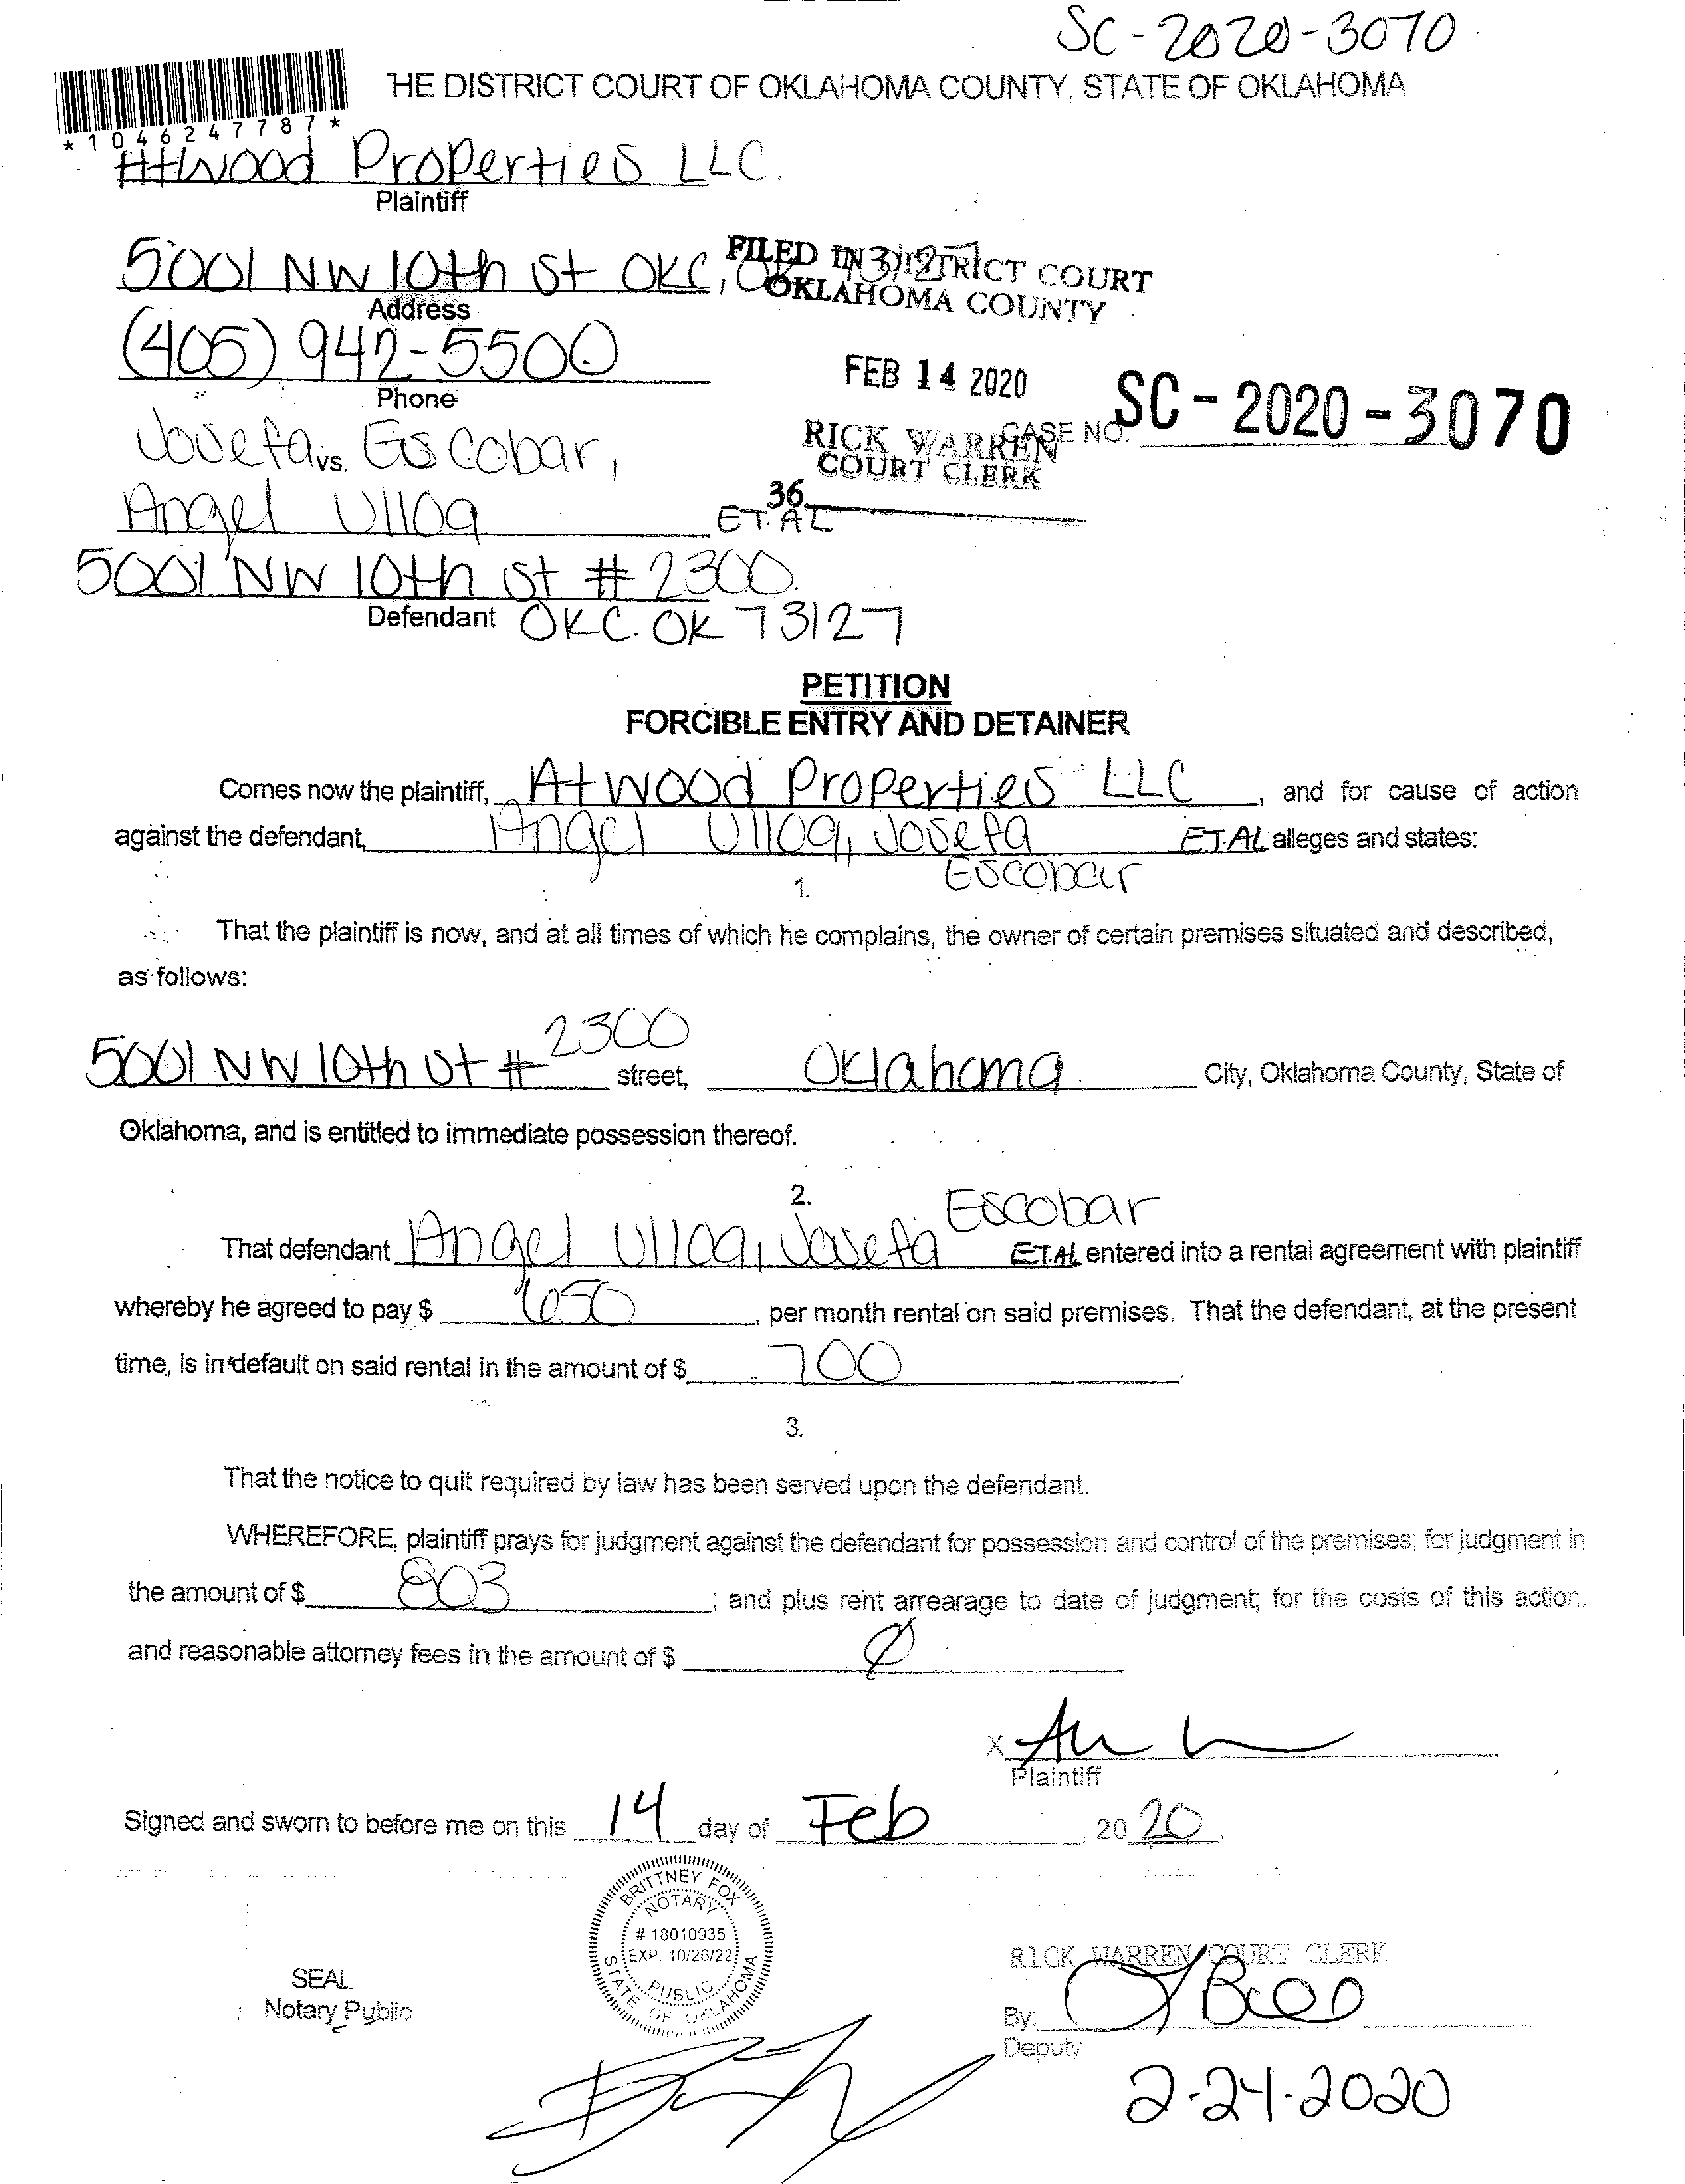 SC-2020-3070
THE DISTRICT COURT OF OKLAHOMA COUNTY, STATE OF OKLAHOMA
*1046247787*
Atwood Properties LLC.
Plaintiff
5001 NW 10th St OKC, OK 73127
Address
FILED IN DISTRICT COURT
OKLAHOMA COUNTY
(405) 942-5500
Phone
FEB 14 2020
CASE NO. SC-2020-3070
RICK WARREN
COURT CLERK
36
Josefa Escobar,
vs.
Angel Ulloa ET.AL
5001 NW 10th St # 2300
Defendant OKC. OK 73127
PETITION
FORCIBLE ENTRY AND DETAINER
Comes now the plaintiff, Atwood Properties LLC, and for cause of action
against the defendant, Angel Ulloa, Josefa Escobar ET.AL alleges and states:
1.
That the plaintiff is now, and at all times of which he complains, the owner of certain premises situated and described,
as follows:
5001 NW 10th St # 2300 street, Oklahoma City, Oklahoma County, State of
Oklahoma, and is entitled to immediate possession thereof.
2.
That defendant Angel Ulloa, Josefa Escobar ET.AL entered into a rental agreement with plaintiff
whereby he agreed to pay $ 650 per month rental on said premises. That the defendant, at the present
time, is in default on said rental in the amount of $ 700
3.
That the notice to quit required by law has been served upon the defendant.
WHEREFORE, plaintiff prays for judgment against the defendant for possession and control of the premises; for judgment in
the amount of $ 803; and plus rent arrearage to date of judgment; for the costs of this action,
and reasonable attorney fees in the amount of $ Ø
X
Plaintiff
Signed and sworn to before me on this 14 day of Feb 2020
BRITTNEY FOX
NOTARY
# 18010935
EXP. 10/26/22
PUBLIC
STATE OF OKLAHOMA
SEAL
Notary Public
RICK WARREN COURT CLERK
By:
Deputy
2-24-2020